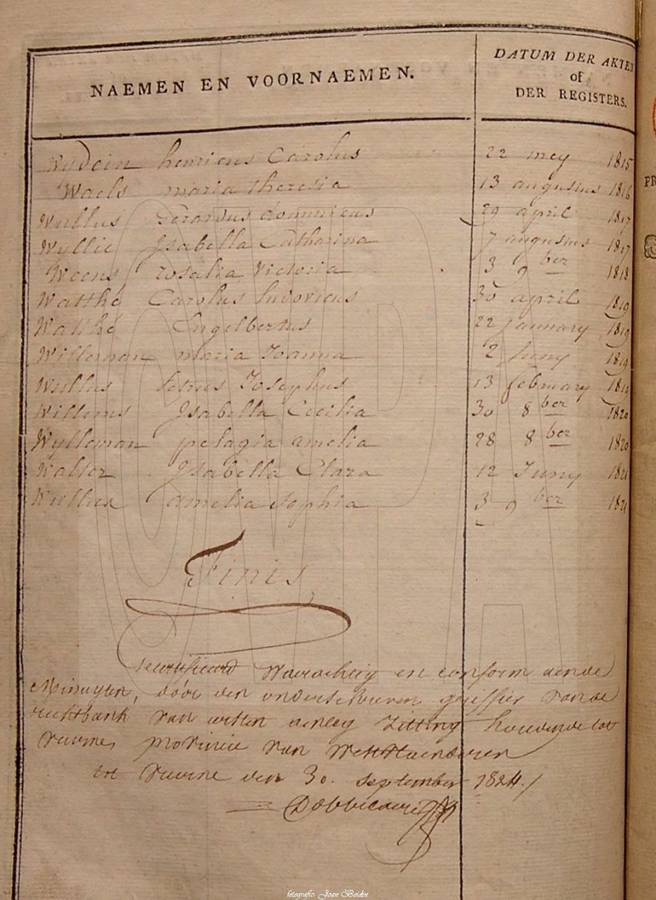 NAEMEN EN VOORNAEMEN.
DATUM DER AKTEN
of
DER REGISTERS.
henricus Carolus 22 mey 1815
Waels maria theresia 13 augustus 1816
Wullus Gerardus dominicus 29 april 1817
Wyllie Isabella Catharina 7 augustus 1817
Weens rosalia Victoria 3 9 ber 1818
Watthé Carolus ludovicus 30 april 1819
Watthé Engelbertus 22 january 1819
Willeman maria Joanna 2 Juny 1819
Wullus Josephus 13 february 1819
Willems Isabella Cecilia 30 8 ber 1820
Wylleman pelagia amelia 28 8 ber 1820
Isabella Clara 12 Juny 1821
amelia sophia 3 9 ber 1821
Finis
en conform aen de
Minuyten, door den onderschreven greffier van de
rechtbank van eersten aenleg Zitting houdende tot
veurne, provincie van Westvlaenderen
tot veurne den 30. september 1824./
fotografie: Joan Beirlen